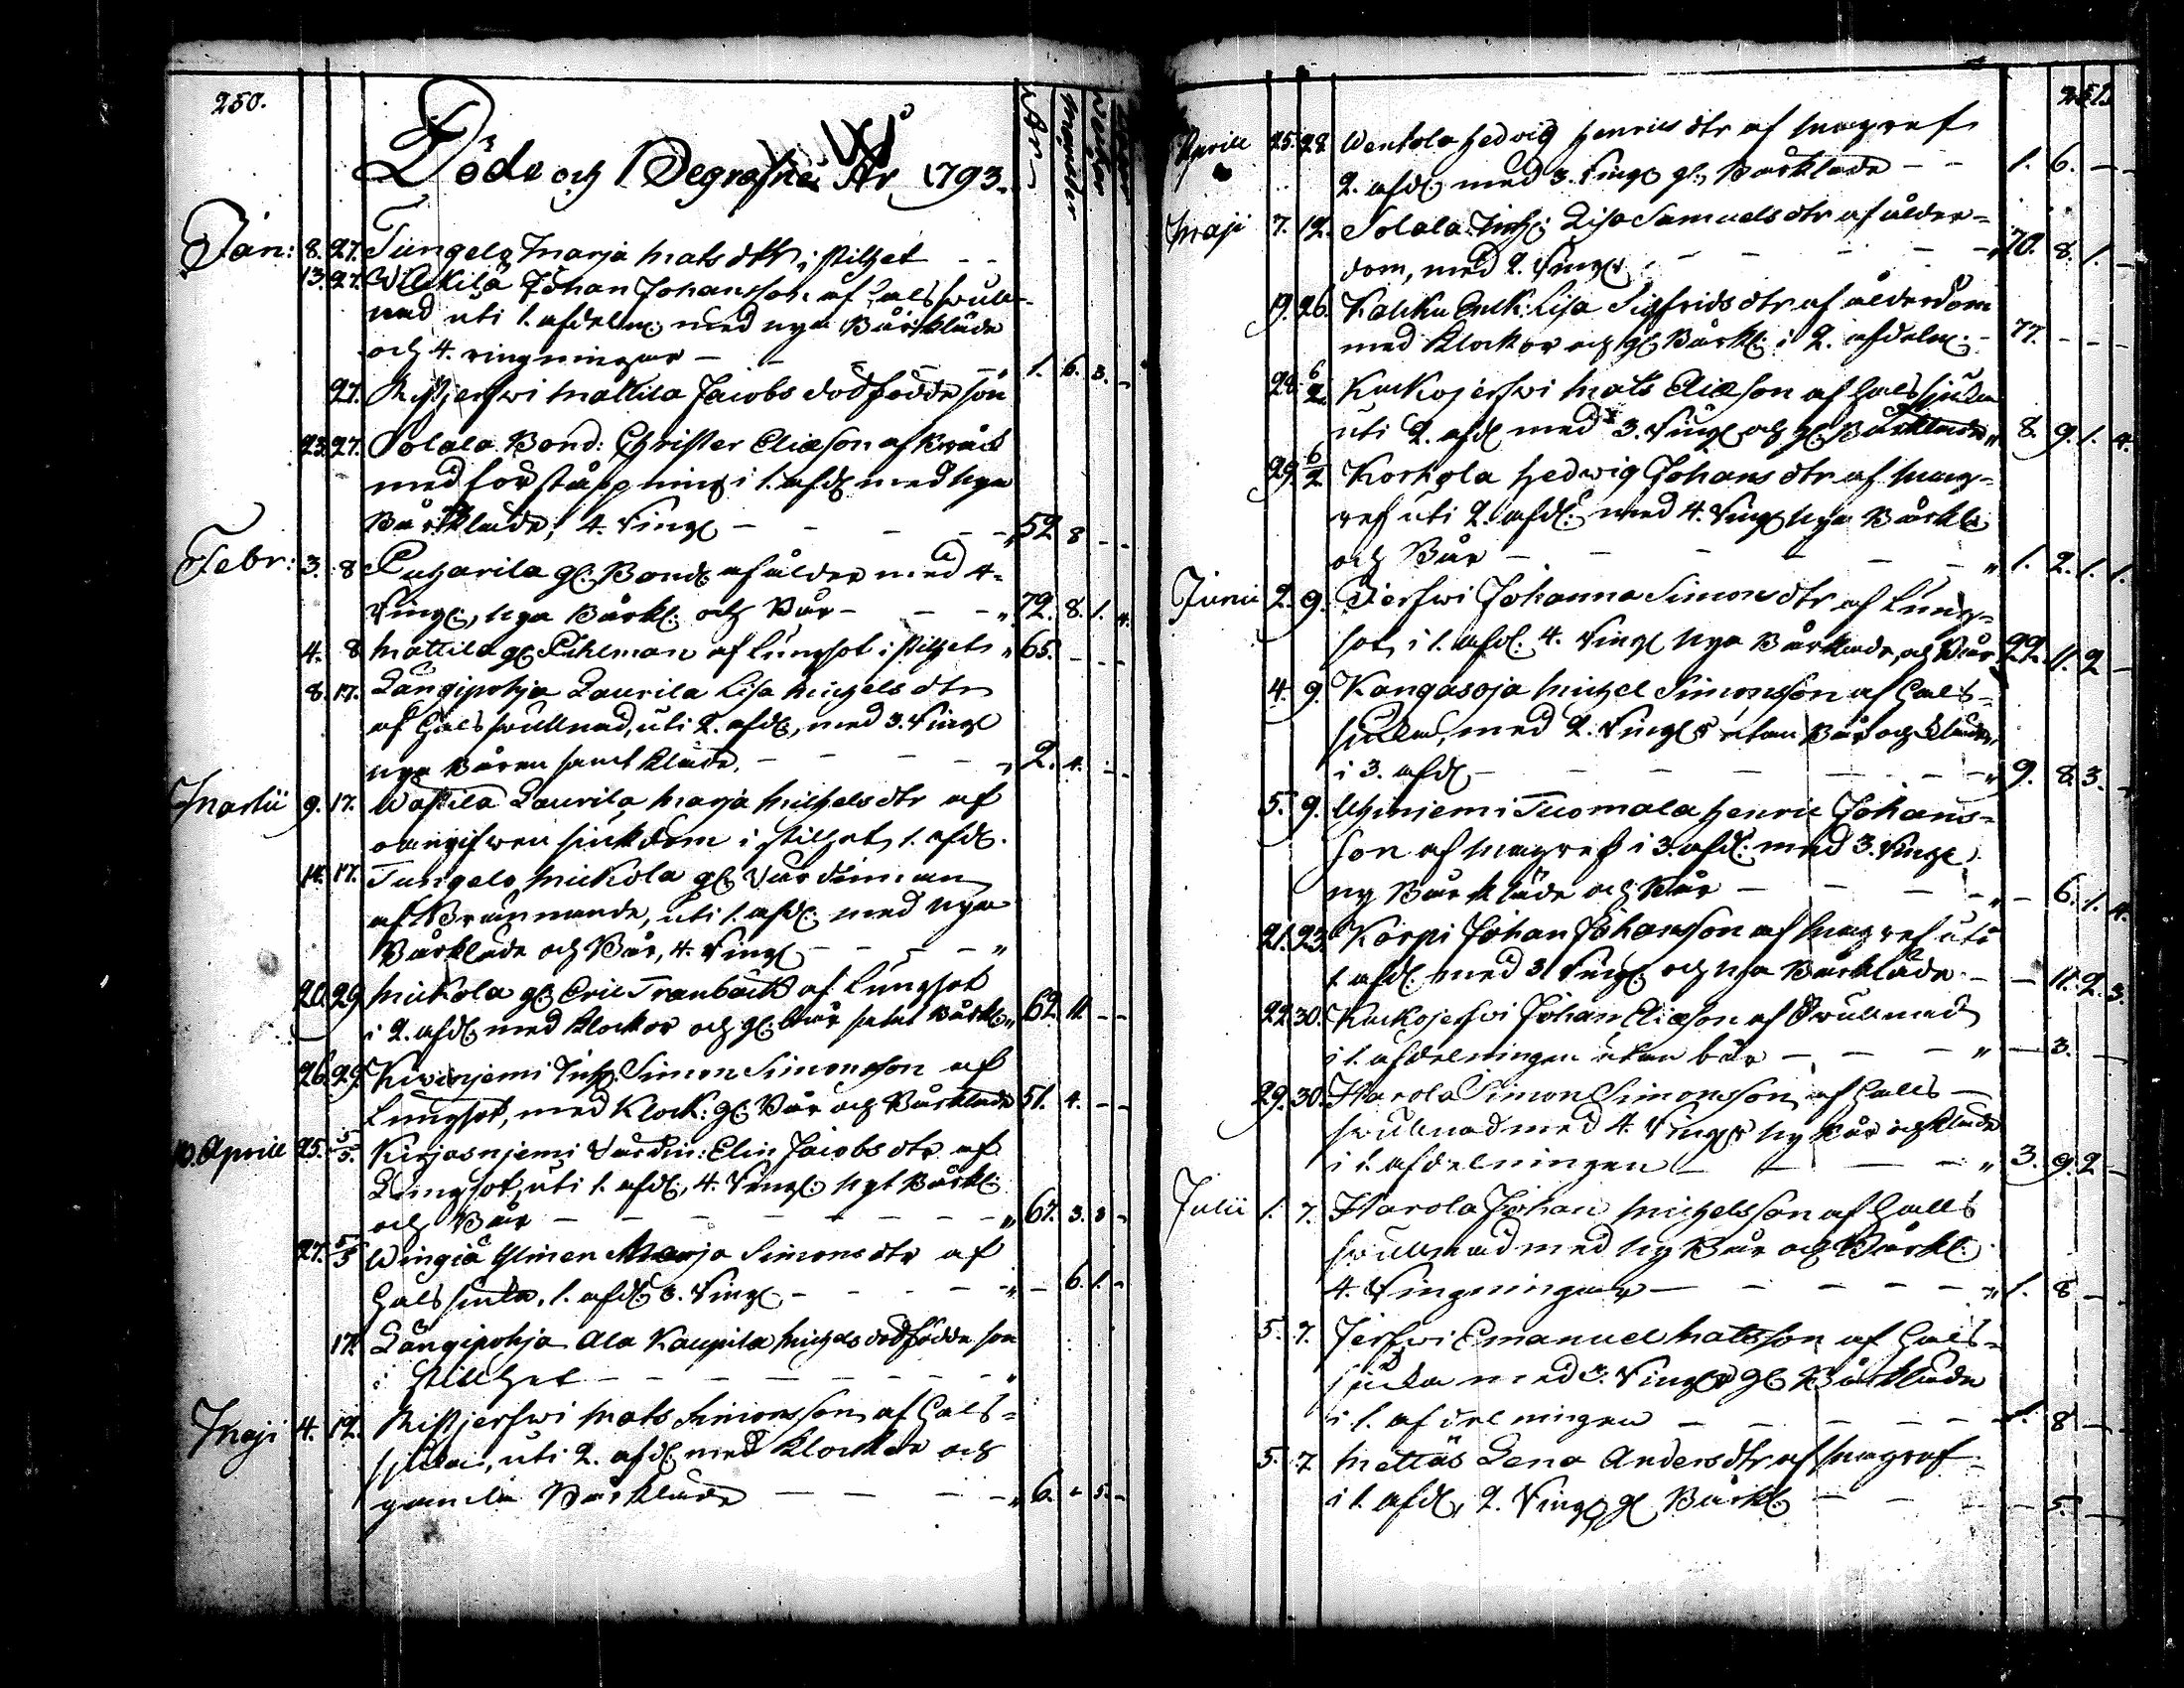 250.
Döde och Begrafne År 1793.
Åhr Månader Wekor Dagar
Jan: 8. 27. Tungelo Marja Mats dttr, i stillhet - -
13. 27. Wilckila Johan Johansson af halsswull-
nad uti 1. afdeln: med nya Bårkläde
och 4. ringningar - - - 1. 6. 3. -
27. Ristjerfwi Mattila Jacobs dödfödde son
23. 27. Solala Bond: Christer Eliæson af Kräck
med förståppning i 1. afd: med nya
Bårkläde, 4. Ring: - - - - 52 8 - -
Febr: 3. 8 Puharila gl: Bond: af ålder med 4-
Ring:, nya Bårkl: och Bår - - - " 72. 8. 1. 4.
4. 8 Mattila gl: Pihlman af Lungsot i stillhet " 65. - - -
8. 17. Långipohja Laurila Lisa Michels dtr
af halsswullnad, uti 2. afd:, med 3. Ring:
nya Båren samt kläde. - - - - " 2. 4. - -
Martii 9. 17. Wassila Laurila Marja Michelsdtr af
oangifwen siukdom i stillhet, 1. afd:
14. 17. Tungelo Mickola gl: Värdinnan
af Brännande, uti 1. afd: med nya
Bårkläde och Bår, 4. Ring: - - - - "
20. 29. Mickola gl: Eric Tranbäck af Lungsot
i 2. afd: med Klockor och gl: bår samt Bårkl: " 62. 11. - -
26. 29. Kiviniemi Inh: Simon Simonsson af
Lungsot, med Klock: gl: Bår och Bårkläde 51. 4. - -
Aprill 25. 5/5. Kirjasniemi Värdin: Elin Jacobs dtr af
Lungsot, uti 1. afd:, 4. Ring: nyt Bårkl:
och Bår - - - - - - - - " 67. 3. 3 -
27. 5/5 Wingiä Ylinen Marja Simons dtr af
Hals siuka, 1. afd: 3. Ring: - - - - " - 6. 1. -
12. Långipohja Ala Kaupila Michels dödfödde son
i stillhet - - - - - - - "
Maji 4. 12. Ristjerfwi Mats Simonsson af hals-
sjuka, uti 2. afd: med Klockor och
gamla Bårkläde - - - - " 6. - 5. -
251.
Aprill 25. 28. Wentola Hedvig Henrics dtr af Magref
2. afd: med 3. Ring: gl: Bårkläde - - 1. 6. - -
Maji 7. 12. Solala Inh: Lisa Samuels dtr af ålder-
dom, med 2. Ring: - - - - - " 70. 8. 1. -
19. 26. Kalcku Enk: Lisa Sigfrids dtr af ålderdom
med Klockor och gl: Bårkl: i 2. afdeln: - 77. - - -
28. 6/2. Kuckojerfwi Mats Eliæson af halssjuka
uti 2. afd: med 3. Ring: och gl: Bårkläde " 8. 9. 1. 4.
29. 6/2 Korkola Hedwig Johans dtr af Mag-
ref uti 2. afd: med 4. Ring: nya Bårkl:
och Bår - - - - - - " 1. 2. 1. 1.
Junii 2. 9. Jerfwi Johanna Simons dtr af Lung-
sot, i 1. afd: 4. Ring: nya Bårkläde, och Bår 22. 11. 2 -
4. 9. Kangasoja Michel Simonsson af hals-
siuka, med 2. Ring:r utan Bår och kläde,
i 3. afd: - - - - - - - " 9. 8. 3. -
5. 9. Yhiniemi Tuomala Henric Johans-
son af Magref i 3. afd: med 3. Ring:
ny Bårkläde och Bår - - - - " - 6. 1. 4.
21. 23. Korpi Johan Johansson af Magref uti
1. afd: med 3. Ring: och nya Bårkläde - - 11. 2. 3.
22. 30. Kuckojerfwi Johan Eliæson af Swullnad
i 1. afdelningen utan bår - - - " - 3. - -
29. 30. Harola Simon Simonsson af Hals-
swullnad med 4. Ring:r ny bår och kläde
i 1. afdelningen - - - - " 3. 9. 2 -
Julii 1. 7. Harola Johan Michelsson af Hals
swullnad med ny Bår och Bårkl:
4. Ringningar - - - - - " 1. 8 - -
5. 7. Jerfwi Emanuel Matsson af hals-
siuka med 3. Ring:r gl: Bårkläde
i 1. afdelningen - - - - - 1. 8 - -
5. 7. Mettäs Lena Anders dtr af Magref
i 1. afd:, 2. Ring:, gl: Bårkl: - - - - 5. -